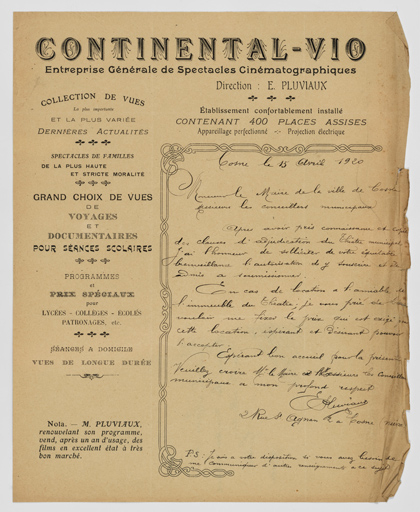 CONTINENTAL-VIO
Entreprise Générale de Spectacles Cinématographiques
Direction : E. PLUVIAUX
Établissement confortablement installé
CONTENANT 400 PLACES ASSISES
Appareillage perfectionné — Projection électrique
COLLECTION DE VUES
La plus importante
ET LA PLUS VARIÉE
DERNIÈRES ACTUALITÉS
SPECTACLES DE FAMILLES
DE LA PLUS HAUTE
ET STRICTE MORALITÉ
GRAND CHOIX DE VUES
DE
VOYAGES
ET
DOCUMENTAIRES
POUR SÉANCES SCOLAIRES
PROGRAMMES
et
PRIX SPÉCIAUX
pour
LYCÉES - COLLÈGES - ÉCOLES
PATRONAGES, etc.
SÉANCES A DOMICILE
VUES DE LONGUE DURÉE
Nota. — M. PLUVIAUX,
renouvelant son programme,
vend, après un an d'usage, des
films en excellent état à très
bon marché.
Cosne le 15 Avril 1920
Monsieur le Maire de la ville de Cosne
Messieurs les conseillers municipaux
Après avoir pris connaissance
des clauses d'adjudication du théatre municipal
j'ai l'honneur de solliciter de votre
bienveillance l'autorisation d'y
En cas de location à l'amiable de
l'immeuble du Théatre, je vous prie de
vouloir me fixer le prix qui est exigé
cette location, espérant et pouvoir
l'accepter.
Espérant bon accueil pour la présente
Veuillez croire Mr le Maire et Messieurs les Conseillers
municipaux a mon profond respect
E Pluviaux
2 Rue St Agnan à Cosne
P.S. Je suis a votre disposition si vous avez besoin de
me communiquer d'autres renseignements a ce sujet